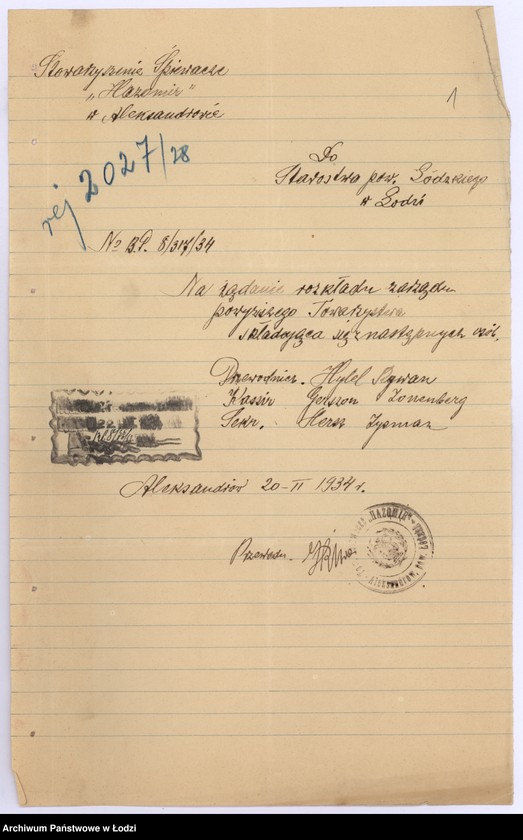 Stowarzyszenie Śpiewacze
"Hazomir"
w Aleksandrowie
1
rej 2027/28
Do
Starostwa pow. Łódzkiego
w Łodzi
No B.P. 8/317/34
Na żądanie rozkładu zarządu
powyższego Towarzystwa
składająca się z następnych osób.
Przewodnicz. Hylel Rywan
Kassir Gerszon Zonenberg
Sekr. Hersz Zysman
Aleksandrów 20-II 1934 r.
Przewodn.
"HAZOMIR"
Archiwum Państwowe w Łodzi